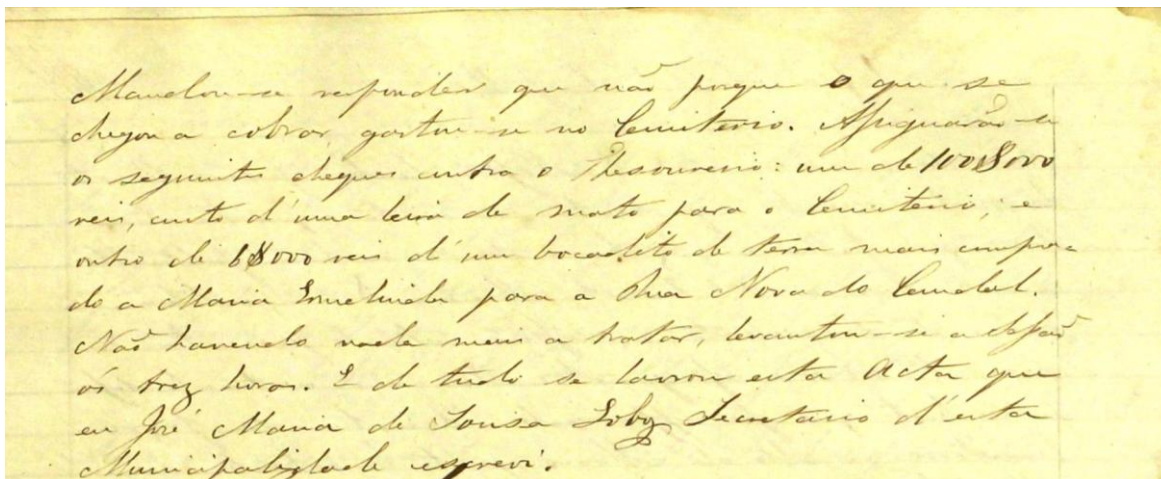 Mandou-se responder que não porque o que se
chegou a cobrar gastou-se no Cemiterio. Assignarão-se
os seguintes cheques contra o Thesoureiro: um de 100$000
reis, custo d'uma leira de mato para o Cemiterio; e
outro de 6$000 reis d'um bocadito de terra mais compra-
do a Maria Ermelinda para a Rua Nova do Candal.
Não havendo nada mais a tratar, levantou-se a Sessão
ás trez horas. E de tudo se lavrou esta Acta que
eu José Maria de Sousa Secretario d'esta
Municipalidade escrevi.